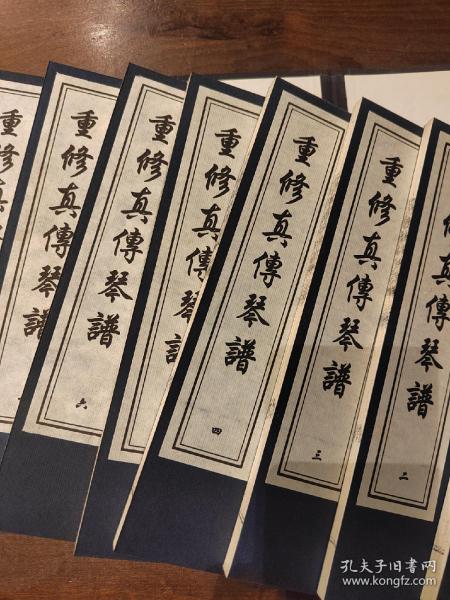 重修真
重修真傳琴譜
重修真傳琴譜
六
重修真傳琴
重修真傳琴譜
四
重修真傳琴譜
三
修真傳琴譜
二
孔夫子旧书网
www.kongfz.com